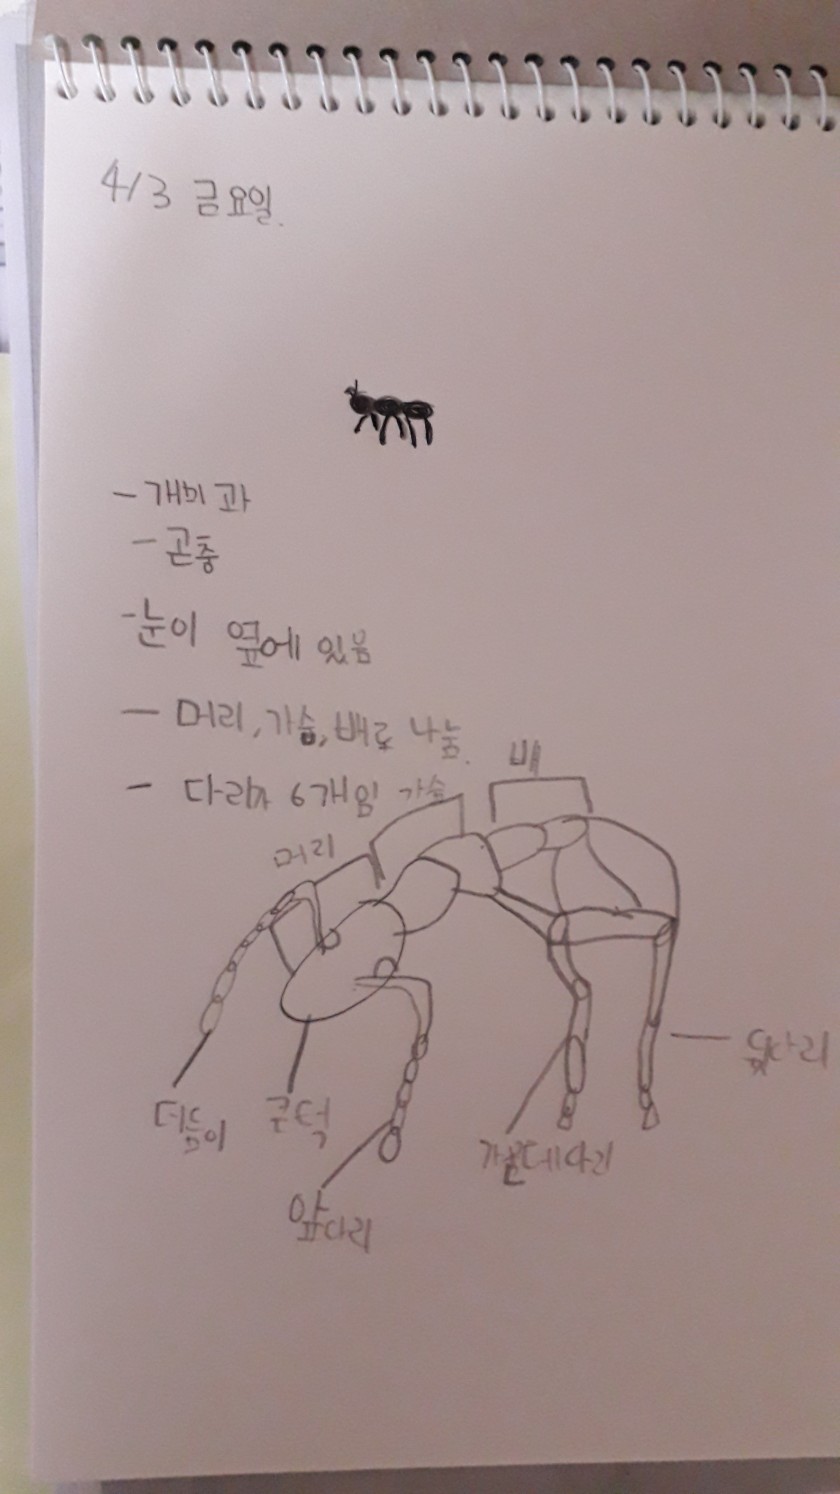 4/3 금요일.
- 개미과
- 곤충
- 눈이 옆에 있음
- 머리, 가슴, 배로 나눔.
- 다리가 6개임
배
가슴
머리
뒷다리
더듬이
큰턱
가운데다리
앞다리